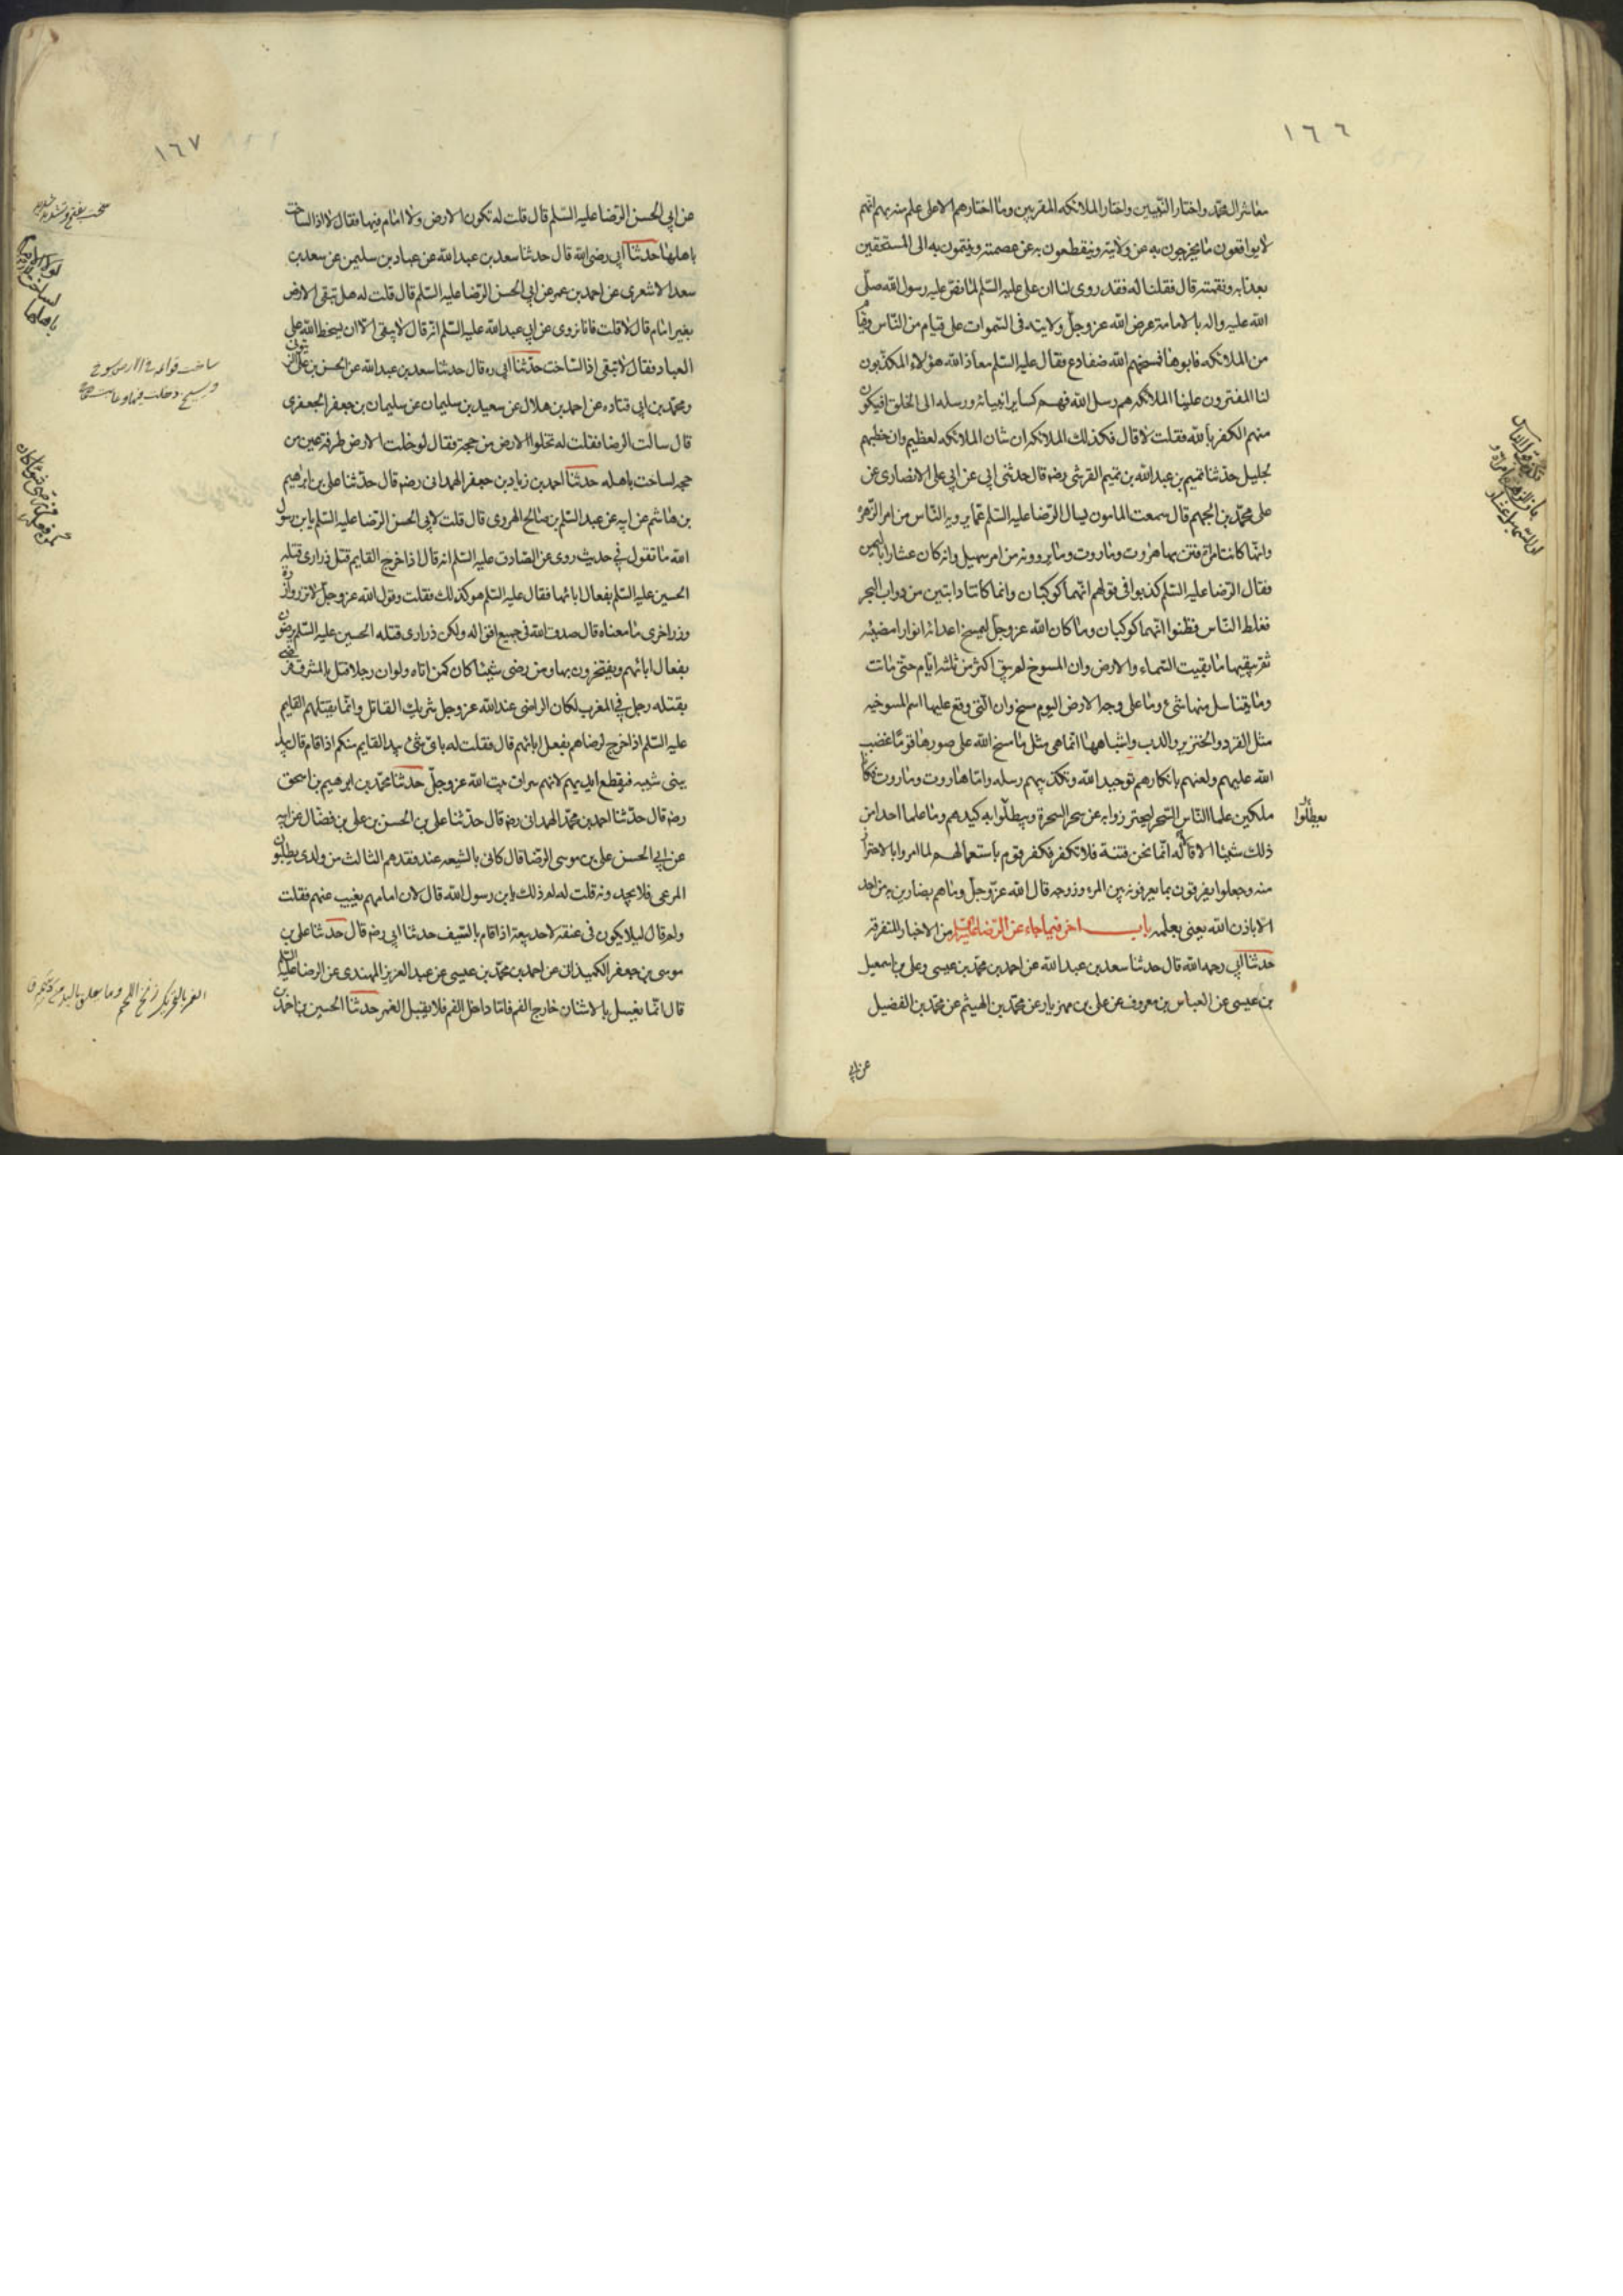 ١٦٦
معاشر آل محمّد واختار النّبيين واختار الملائكه المقربين وما اختارهم الا على علم منه بهم انّهم
لا يواقعون ما يخرجون به عن ولايته وينقطعون به عن عصمته وينتمون به الى المستحقين
بعذابه ونقمته قال فقلنا له فقد روى لنا ان على عليه السّلم لما نصّ عليه رسول الله صلّى
الله عليه واله بالامامة عرض الله عز وجلّ ولايته فى السّموات على فيام من النّاس وفيام
من الملائكه فابوها فمسخهم الله ضفادع فقال عليه السّلم معاذ الله هؤلاء المكذّبون
لنا المفترون علينا الملائكه هم رسل الله فهم كساير انبيائه ورسله الى الخلق افيكون
منهم الكفر بالله فقلت لا قال فكذلك الملائكه ان شان الملائكه لعظيم وان خطبهم
لجليل حدثنا تميم بن عبدالله بن تميم القرشى رضه قال حدثنى ابى عن ابى على الانصارى عن
على محمّد بن الجهم قال سمعت المامون يسال الرّضا عليه السّلم عمّا يرويه النّاس من امر الزّهرة
وانّها كانت امراة فتن بها هروت وماروت وما يروونه من امر سهيل وانه كان عشارا باليمن
فقال الرّضا عليه السّلم كذبوا فى قولهم انّهما كوكبان وانما كانتا دابتين من دواب البحر
فغلط النّاس فظنوا انّهما كوكبان وما كان الله عز وجلّ ليمسخ اعدائه انوارا مضيئه
ثم يبقيها ما بقيت السّماء والارض وان المسوخ لم يبق اكثر من ثلثه ايّام حتّى ماتت
وما يتناسل منها شىء وما على وجه الارض اليوم مسخ وان الّتى وقع عليها اسم المسوخيه
مثل القرد والخنزير والدب واشباهها انّما هى مثل ما مسخ الله على صورها قومًا غضب
الله عليهم ولعنهم بانكارهم توحيد الله وتكذيبهم رسله وامّا هاروت وماروت فكانا
ملكين علما النّاس السّحر ليحترزوا به عن سحر السحرة ويبطلوا به كيدهم وما علما احدا من
يبطلوا
ذلك شيئا الا قالا له انّما نحن فتنة فلا تكفر فكفر قوم باستعمالهم لما امروا بالاحتراز
منه وجعلوا يفرقون بما يعرفونه بين المرء وزوجه قال الله عزّ وجلّ وما هم بضارين به من احد
الا باذن الله يعنى بعلمه باب اخر فيما جاء عن الرّضا عليه السّلم من الاخبار المتفرقة
حدثنا ابى رحمه الله قال حدثنا سعد بن عبدالله عن احمد بن محمّد بن عيسى وعلى بن اسمعيل
بن عيسى عن العباس بن معروف عن على بن مهزيار عن محمّد بن الهيثم عن محمّد بن الفضيل
عن ابى
١٦٧
عن ابى الحسن الرّضا عليه السّلم قال قلت له تكون الارض ولا امام فيها فقال لا اذا لساخت
باهلها حدثنا ابى رضى الله قال حدثنا سعد بن عبدالله عن عباد بن سليمن عن سعد بن
سعد الاشعرى عن احمد بن عمر عن ابى الحسن الرّضا عليه السّلم قال قلت له هل تبقى الارض
بغير امام قال لا قلت فانا نروى عن ابى عبدالله عليه السّلم انّه قال لا يبقى الا ان يسخط الله على
العباد فقال لا تبقى اذا لساخت حدّثنا ابى ره قال حدثنا سعد بن عبدالله عن الحسن بن على الزيتونى
ومحمّد بن ابى قتاده عن احمد بن هلال عن سعيد بن سليمان عن سليمان بن جعفر الجعفرى
قال سالت الرضا فقلت له تخلوا الارض من حجة فقال لو خلت الارض طرفة عين من
حجه لساخت باهله حدثنا احمد بن زياد بن جعفر الهمدانى رضه قال حدّثنا على بن ابرهيم
بن هاشم عن ابيه عن عبد السّلم بن صالح الهروى قال قلت لابى الحسن الرّضا عليه السّلم يابن رسول
الله ما تقول فى حديث روى عن الصّادق عليه السّلم انه قال اذا خرج القايم قتل ذرارى قتله
الحسين عليه السّلم بفعال ابائها فقال عليه السّلم هو كذلك فقلت وقول الله عز وجلّ لا تزر وازرة
وزر اخرى ما معناه قال صدق الله فى جميع اقواله ولكن ذرارى قتله الحسين عليه السّلم يرضون
بفعال ابائهم ويفتخرون بها ومن رضى شيئا كان كمن اتاه ولو ان رجلا قتل بالمشرق فرضى
بقتله رجل فى المغرب لكان الراضى عند الله عز وجل شريك القاتل وانّما يقتلهم القايم
عليه السّلم اذا خرج لرضاهم بفعل ابائهم قال فقلت له باى شىء يبدا القايم منكم اذا قام قال يبدا
ببنى شيبه فيقطع ايديهم لانهم سراق بيت الله عز وجلّ حدثنا محمّد بن ابرهيم بن اسحق
رضه قال حدّثنا احمد بن محمّد الهمدانى رضه قال حدّثنا على بن الحسن بن على بن فضّال عن ابيه
عن ابى الحسن على بن موسى الرّضا قال كانى بالشيعه عند فقدهم الثالث من ولدى يطلبون
المرعى فلا يجدونه قلت له لم ذلك يابن رسول الله قال لان امامهم يغيب عنهم فقلت
ولم قال ليلا يكون فى عنقه لاحد بيعة اذا قام بالسّيف حدثنا ابى رضه قال حدثنا على بن
موسى بن جعفر الكميدانى عن احمد بن محمّد بن عيسى عن عبد العزيز المهتدى عن الرضا عليه السّلم
قال انّما يغسل بالاشنان خارج الفم فامّا داخل الفم فلا يقبل الغمر حدثنا الحسين بن احمد بن